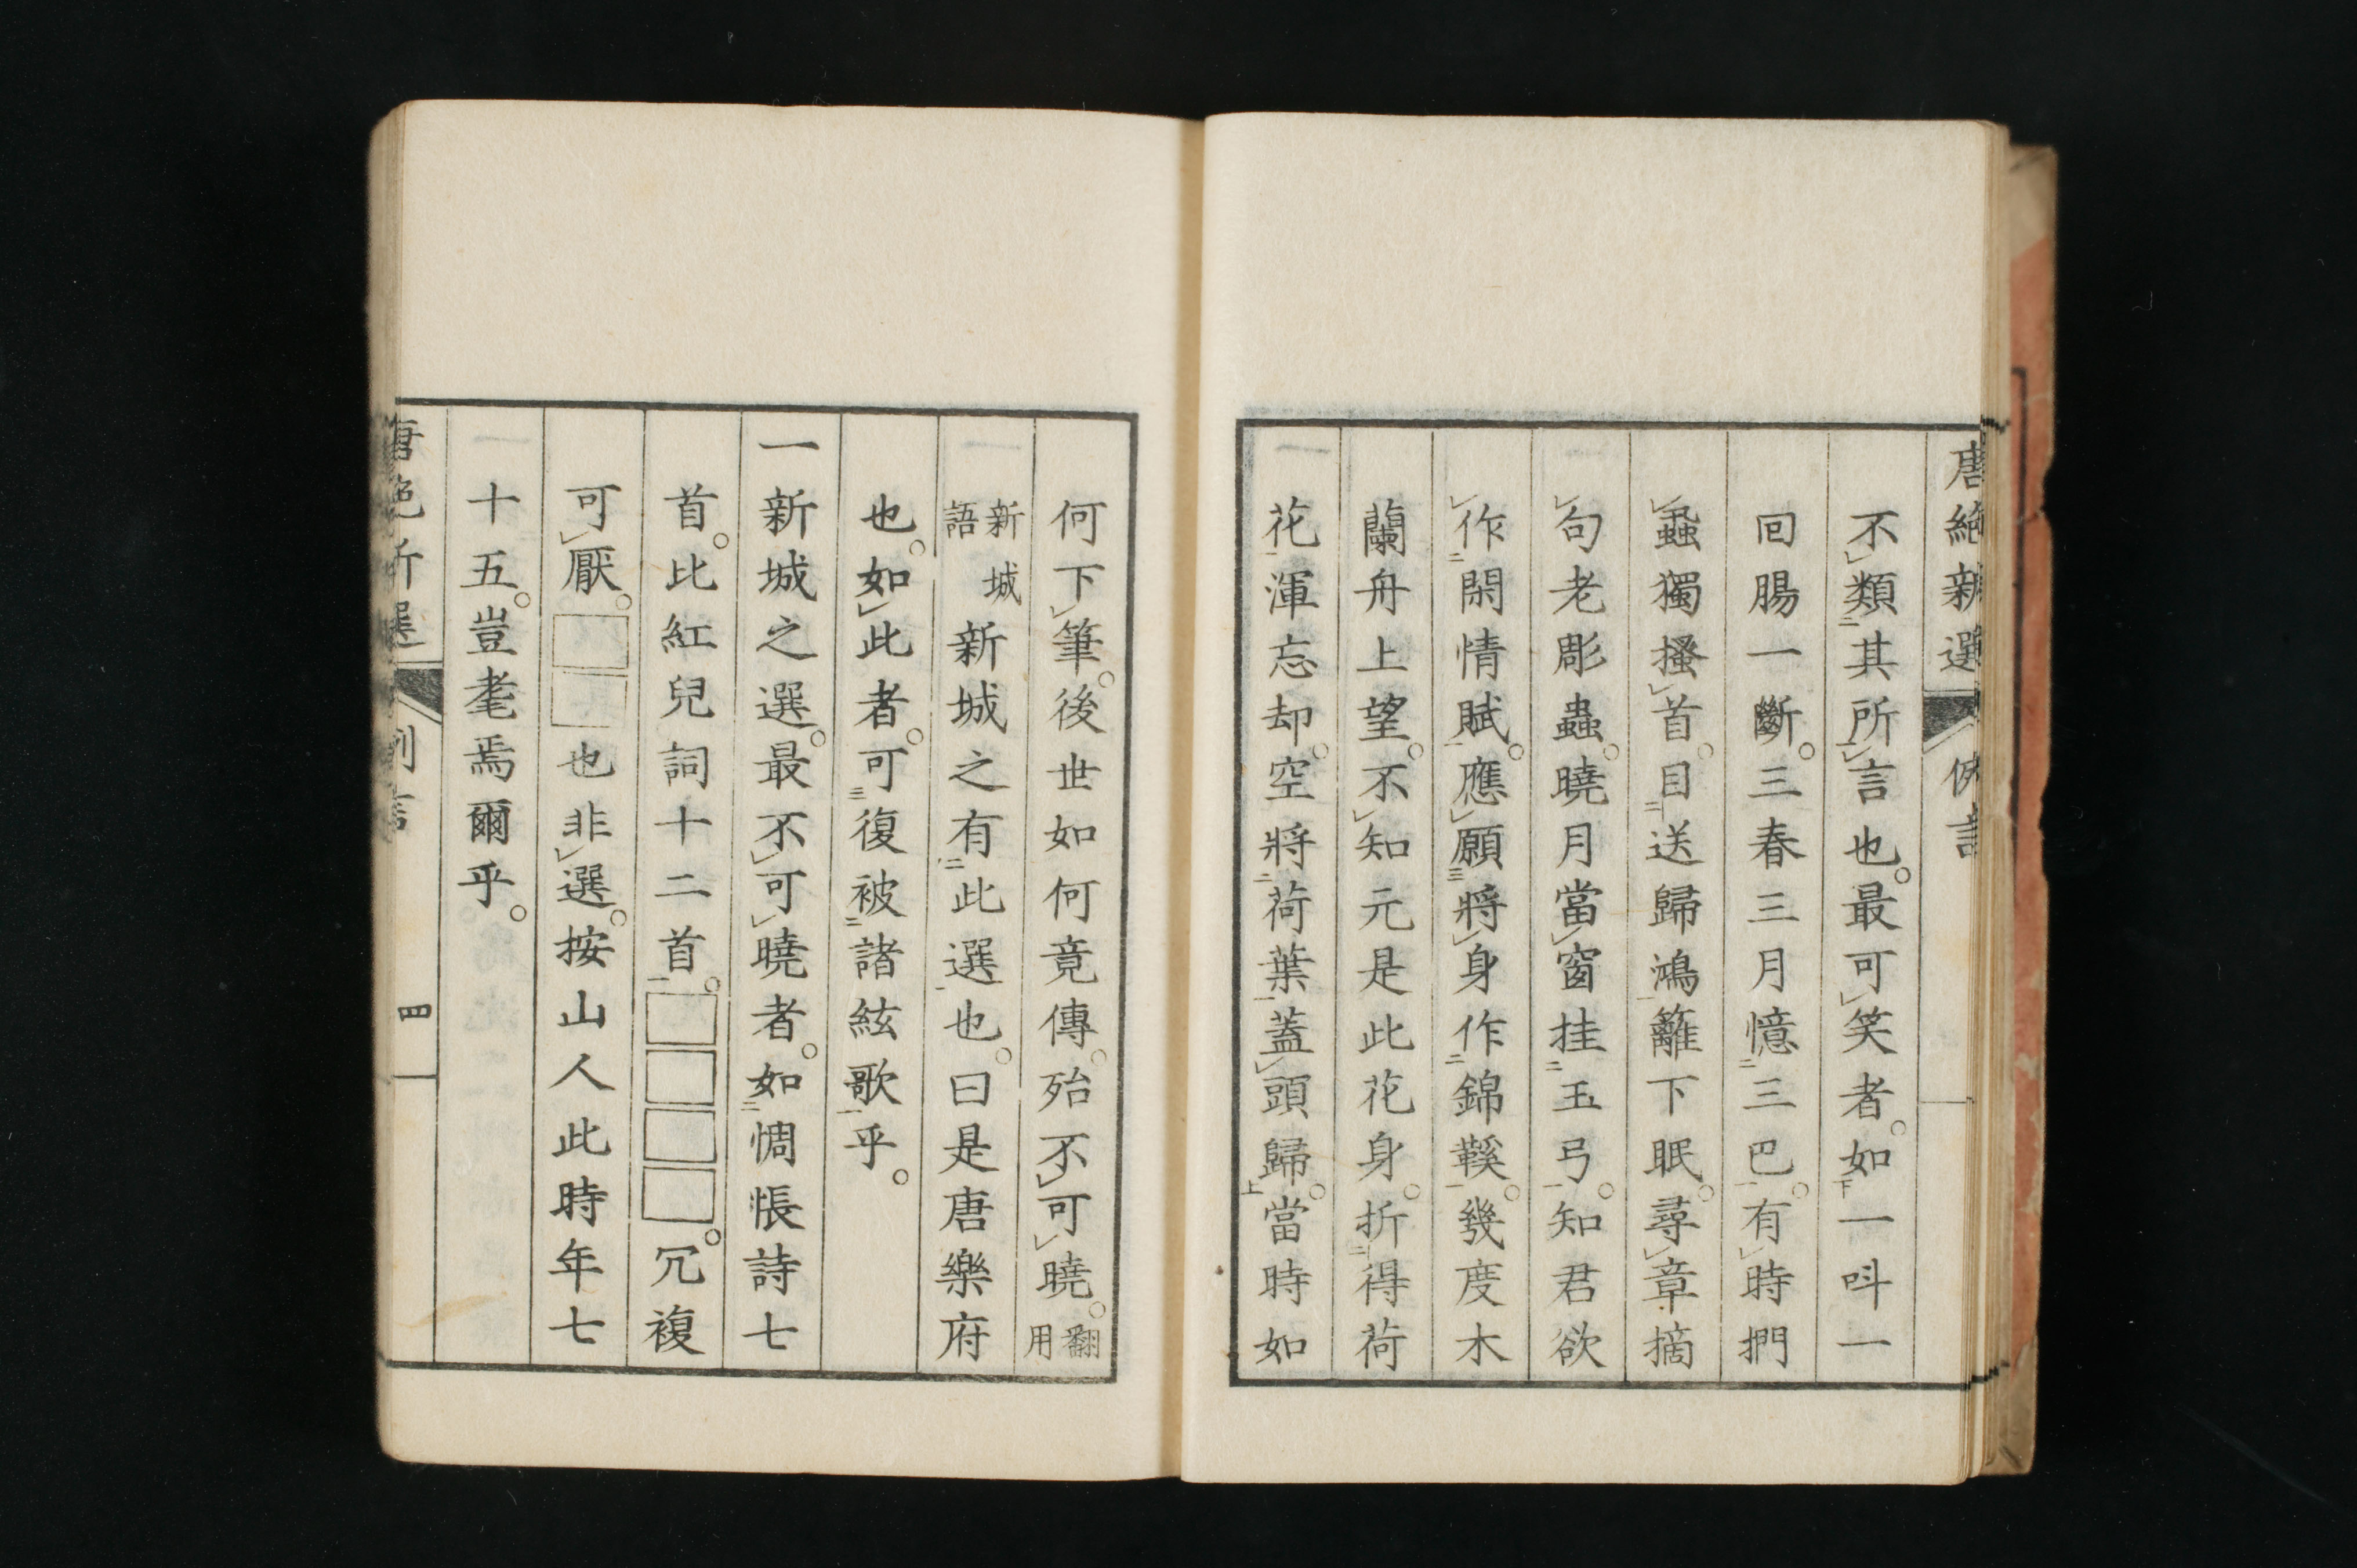 唐絶新選 例言
不類其所言也。最可笑者。如一叫一
回腸一斷。三春三月憶三巴。有時捫
蝨獨搔首。目送歸鴻籬下眠。尋章摘
句老彫蟲。曉月當窗挂玉弓。知君欲
作閑情賦。應願將身作錦鞵。幾度木
蘭舟上望。不知元是此花身。折得荷
花渾忘却。空將荷葉蓋頭歸。當時如
何下筆。後世如何竟傳。殆不可曉。翻用
新城語新城之有此選也。曰是唐樂府
也。如此者。可復被諸絃歌乎。
一新城之選。最不可曉者。如惆悵詩七
首。比紅兒詞十二首。□□□□。冗複
可厭。□□也非選。按山人此時年七
十五。豈耄焉爾乎。
唐絶新選 例言 四